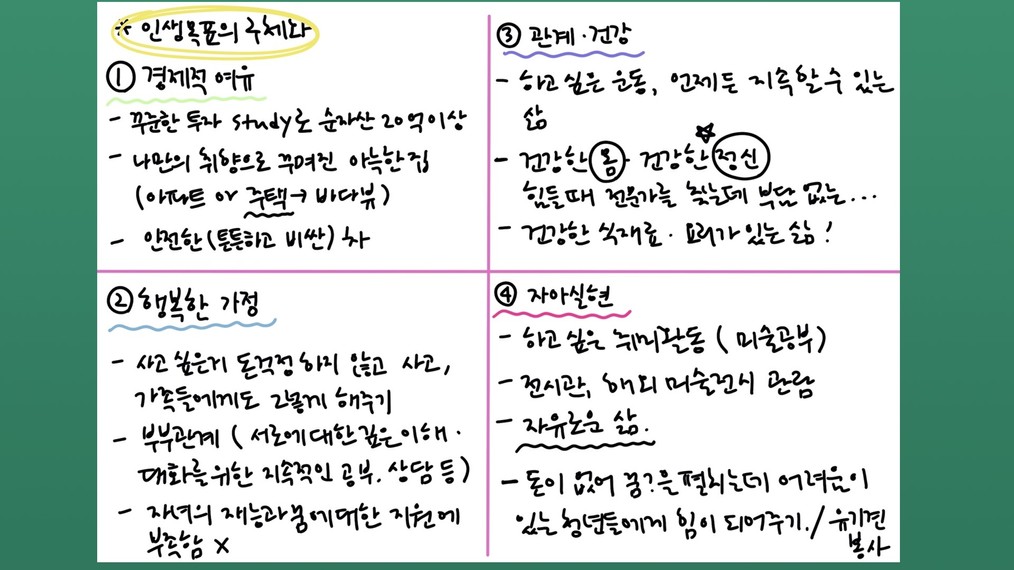 * 인생목표의 구체화
① 경제적 여유
- 꾸준한 투자 study로 순자산 20억이상
- 나만의 취향으로 꾸며진 아늑한 집
(아파트 or 주택→ 바다뷰)
- 안전한(튼튼하고 비싼) 차
② 행복한 가정
- 사고 싶은거 돈걱정 하지 않고 사고,
가족들에게도 그렇게 해주기
- 부부관계 ( 서로에 대한 깊은 이해·
대화를 위한 지속적인 공부. 상담 등)
- 자녀의 재능과 꿈에 대한 지원에
부족함 X
③ 관계·건강
- 하고 싶은 운동, 언제든 지속할 수 있는
삶
- 건강한 몸· 건강한 정신
힘들 때 전문가를 찾는데 부담 없는...
- 건강한 식재료· 요리가 있는 삶!
④ 자아실현
- 하고 싶은 취미활동 ( 미술공부)
- 전시관, 해외 미술전시 관람
- 자유로운 삶.
- 돈이 없어 꿈?을 펼치는데 어려움이
있는 청년들에게 힘이 되어주기./ 유기견
봉사